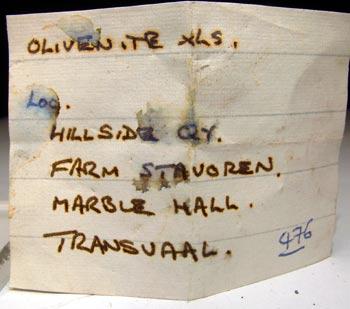 OLIVENITE XLS.
LOC.
HILLSIDE QY.
FARM STAVOREN.
MARBLE HALL.
TRANSVAAL.
476